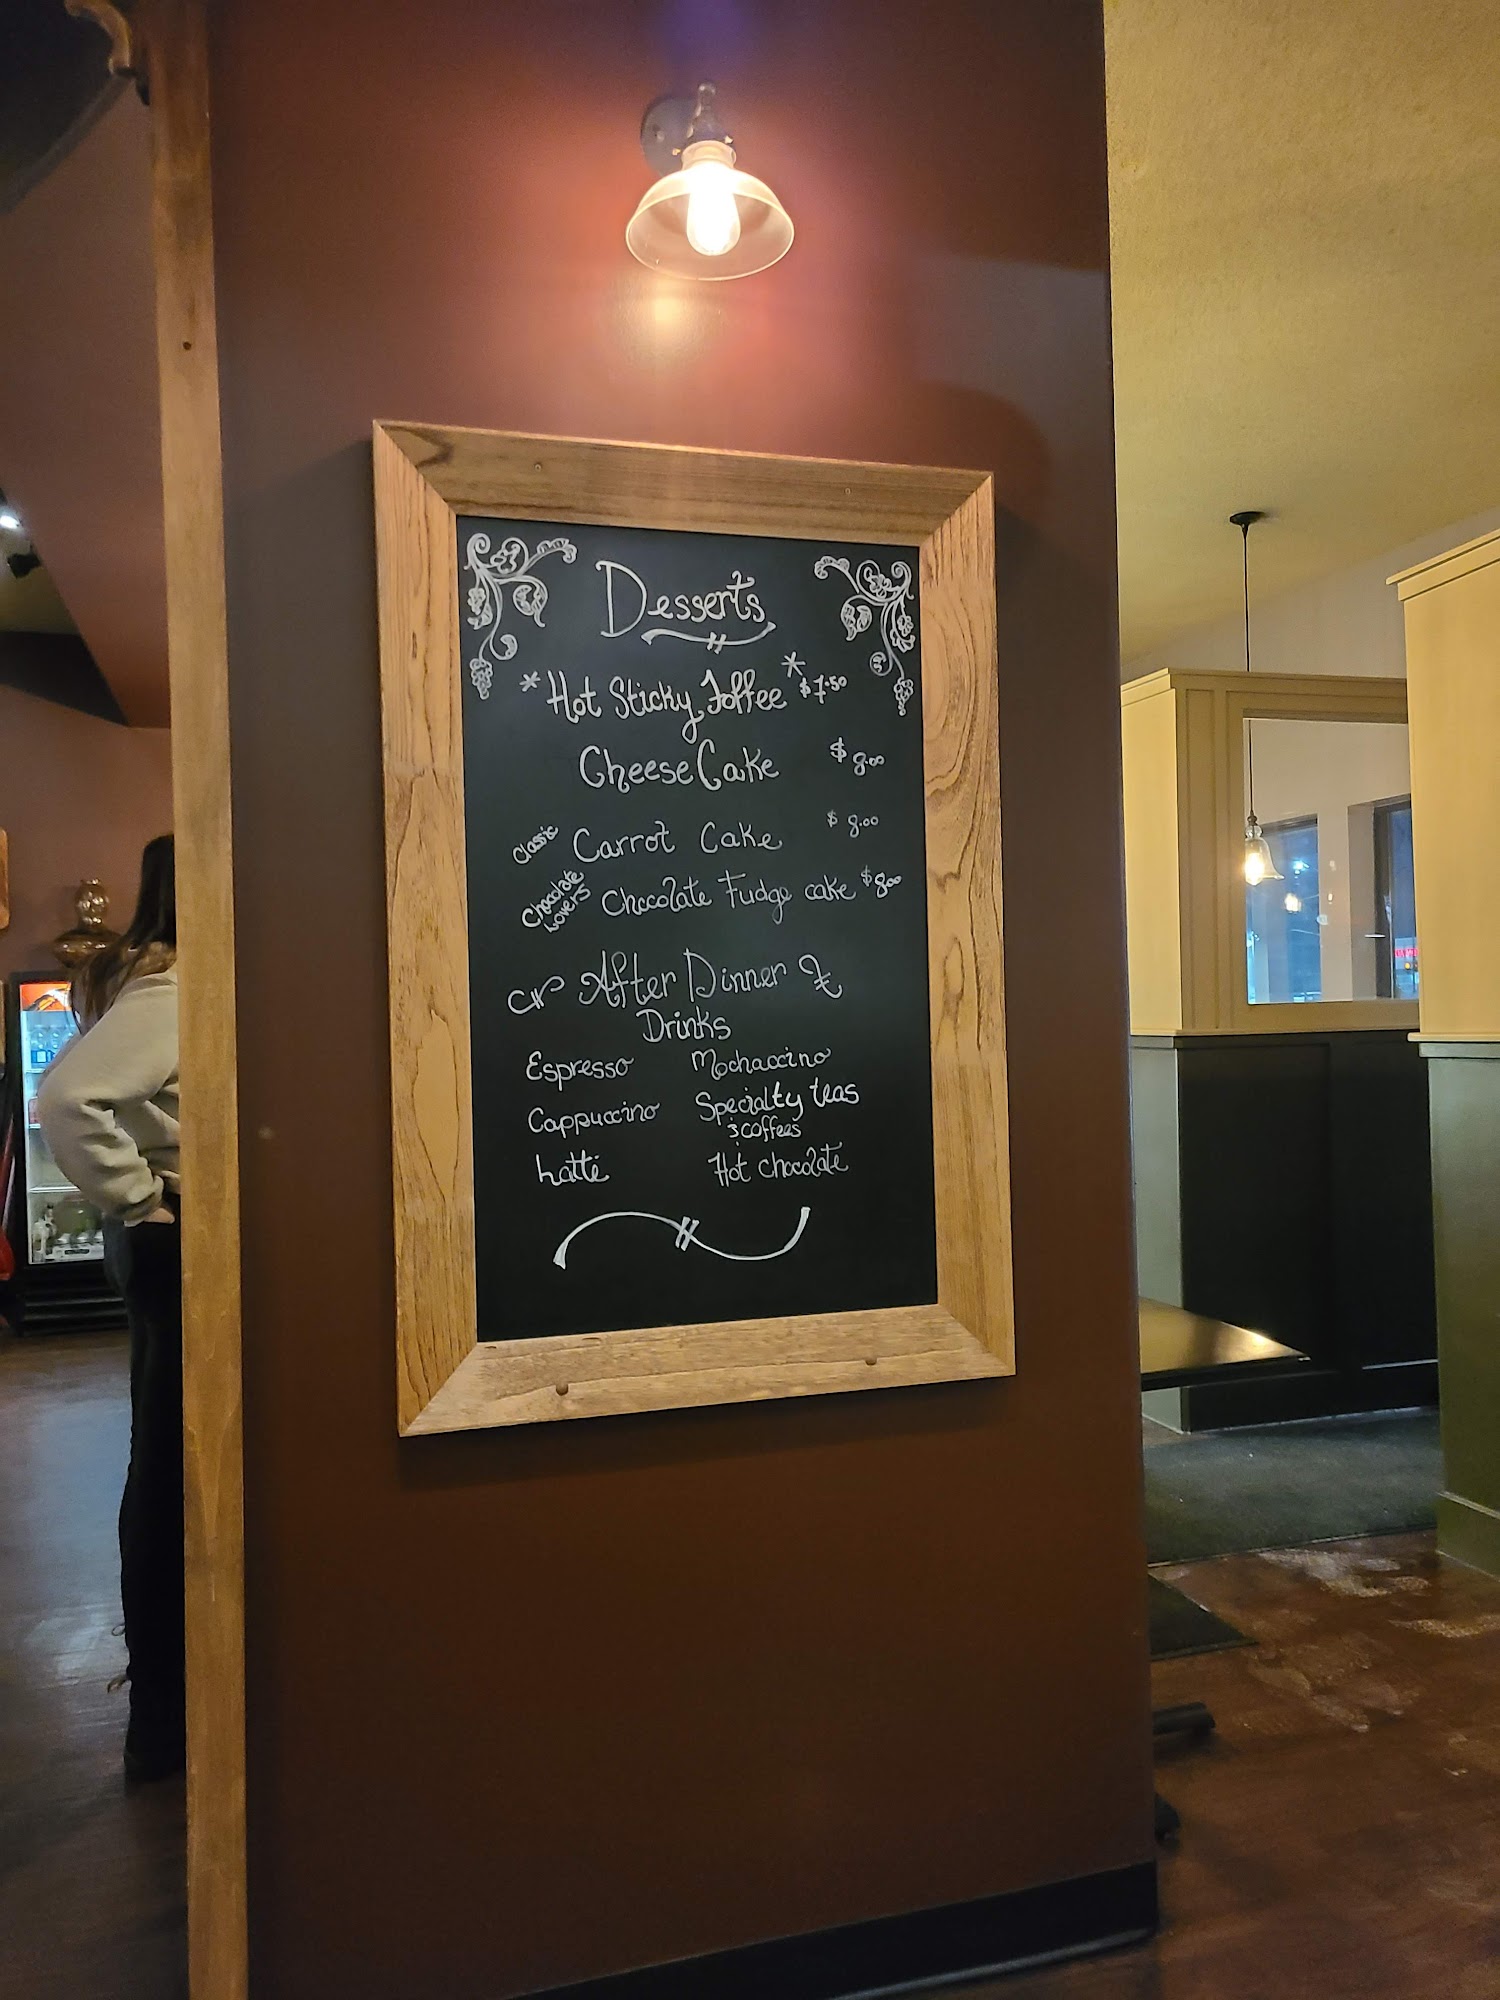 Desserts
* Hot Sticky Toffee * $7.50
CheeseCake $8.00
Classic Carrot Cake $8.00
Chocolate Lovers Chocolate Fudge cake $8.00
After Dinner
Drinks
Espresso Mochaccino
Cappuccino Specialty teas
& coffees
Latte Hot chocolate